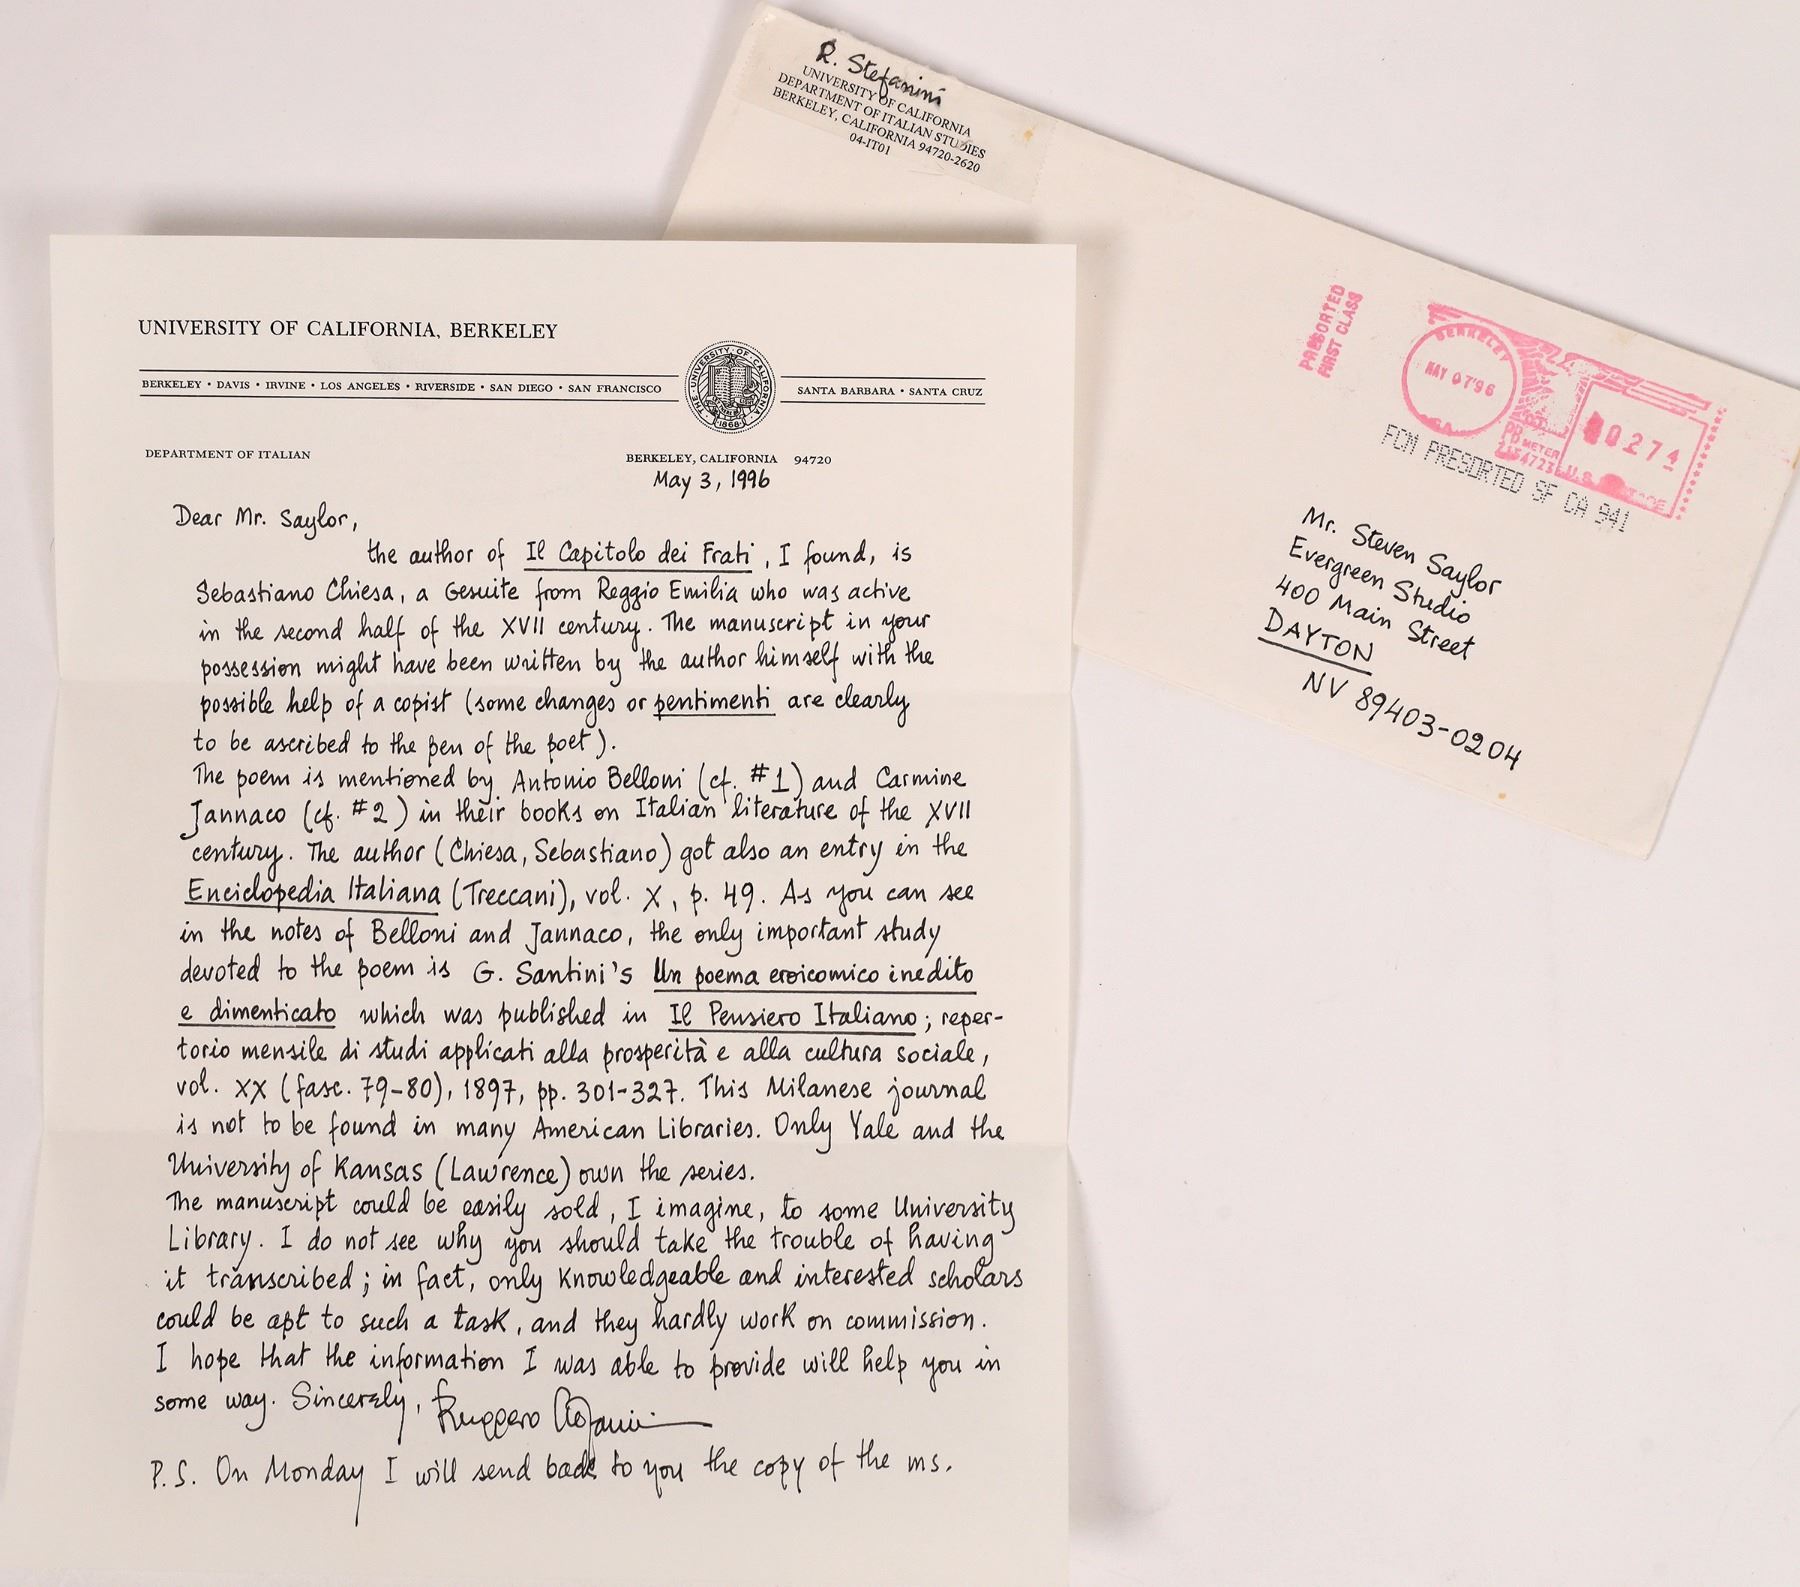 R. Stefanini
UNIVERSITY OF CALIFORNIA
DEPARTMENT OF ITALIAN STUDIES
BERKELEY, CALIFORNIA 94720-2620
04-IT01
PRESORTED
FIRST CLASS
BERKELEY
MAY 07'96
CA
PB METER
U.S. POSTAGE
0274
FCM PRESORTED SF CA 941
Mr. Steven Saylor
Evergreen Studio
400 Main Street
DAYTON
NV 89403-0204
UNIVERSITY OF CALIFORNIA, BERKELEY
BERKELEY • DAVIS • IRVINE • LOS ANGELES • RIVERSIDE • SAN DIEGO • SAN FRANCISCO
THE UNIVERSITY OF CALIFORNIA
1868
SANTA BARBARA • SANTA CRUZ
DEPARTMENT OF ITALIAN
BERKELEY, CALIFORNIA 94720
May 3, 1996
Dear Mr. Saylor,
the author of Il Capitolo dei Frati, I found, is
Sebastiano Chiesa, a Gesuite from Reggio Emilia who was active
in the second half of the XVII century. The manuscript in your
possession might have been written by the author himself with the
possible help of a copist (some changes or pentimenti are clearly
to be ascribed to the pen of the poet).
The poem is mentioned by Antonio Belloni (cf. #1) and Carmine
Jannaco (cf. #2) in their books on Italian literature of the XVII
century. The author (Chiesa, Sebastiano) got also an entry in the
Enciclopedia Italiana (Treccani), vol. X, p. 49. As you can see
in the notes of Belloni and Jannaco, the only important study
devoted to the poem is G. Santini's Un poema eroicomico inedito
e dimenticato which was published in Il Pensiero Italiano; reper-
torio mensile di studi applicati alla prosperità e alla cultura sociale,
vol. XX (fasc. 79-80), 1897, pp. 301-327. This Milanese journal
is not to be found in many American Libraries. Only Yale and the
University of Kansas (Lawrence) own the series.
The manuscript could be easily sold, I imagine, to some University
Library. I do not see why you should take the trouble of having
it transcribed; in fact, only knowledgeable and interested scholars
could be apt to such a task, and they hardly work on commission.
I hope that the information I was able to provide will help you in
some way. Sincerely, Ruggero Stefanini
P.S. On Monday I will send back to you the copy of the ms.